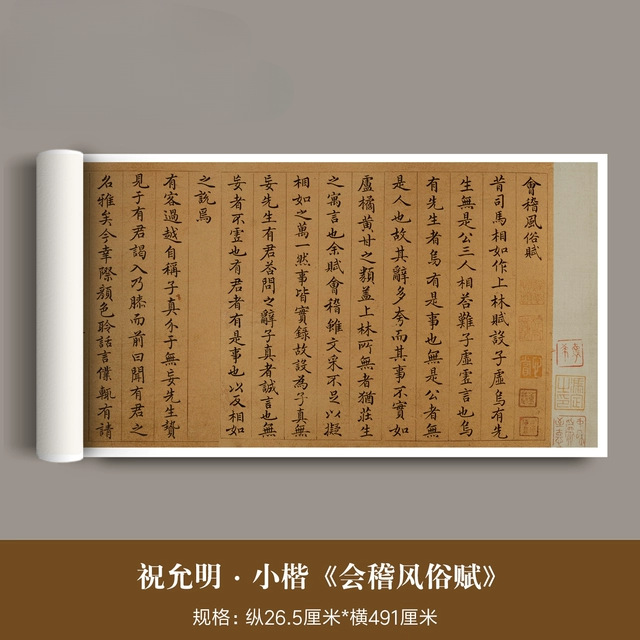 會稽風俗賦
昔司馬相如作上林賦設子虛烏有先
生無是公三人相答難子虛虛言也烏
有先生者烏有是事也無是公者無
是人也故其辭多夸而其事不實如
盧橘黃甘之類蓋上林所無者猶莊生
之寓言也余賦會稽雖文采不足以擬
相如之萬一然事皆實錄故設為子真無
妄先生有君答問之辭子真者誠言也無
妄者不虛也有君者有是事也以反相如
之說焉
有客過越自稱子真介于無妄先生贄
見于有君謁入乃膝而前曰聞有君之
名雅矣今幸際顏色聆話言僕輒有請
祝允明·小楷《会稽风俗赋》
规格：纵26.5厘米*横491厘米